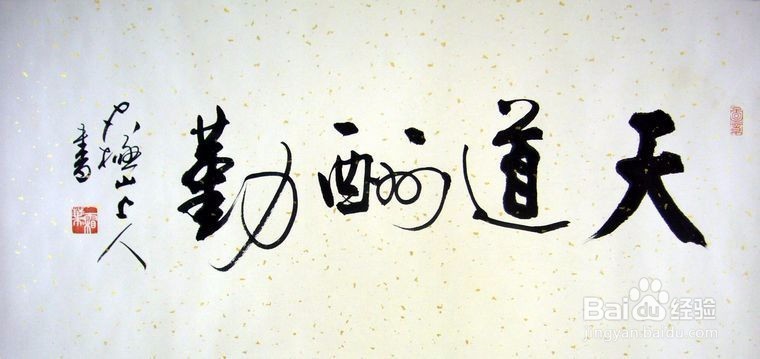 天道酬勤
山上人
書
Baidu经验
jingyan.baidu.com